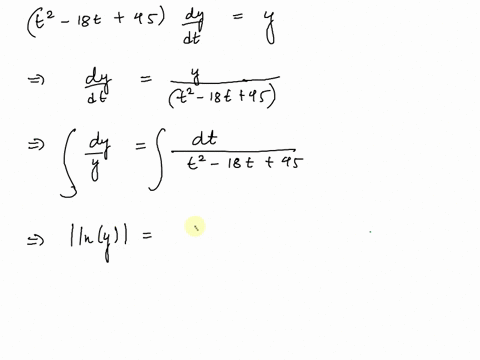 (t² - 18t + 95) dy/dt = y
⇒ dy/dt = y/(t² - 18t + 95)
⇒ ∫ dy/y = ∫ dt/t² - 18t + 95
⇒ |ln(y)| =